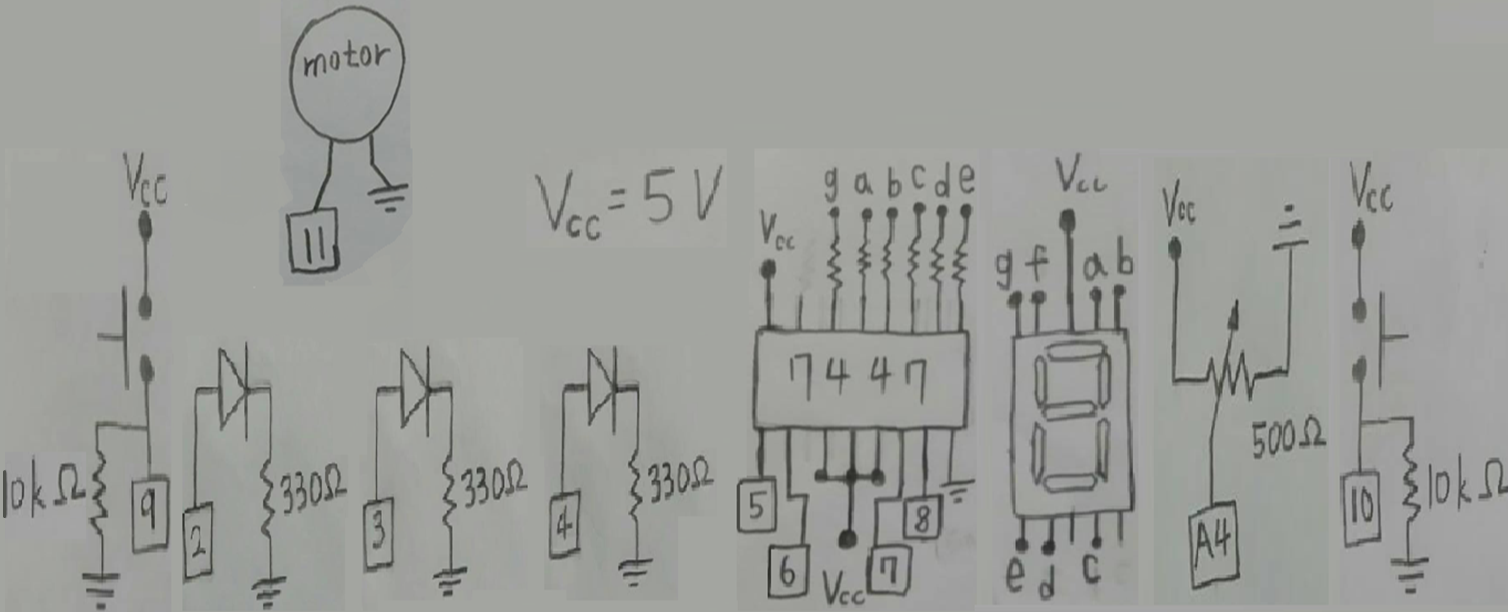 motor
11
Vcc
10k Ω
9
2
330Ω
3
330Ω
4
330Ω
Vcc = 5 V
g a b c d e
Vcc
7447
5
6
Vcc
7
8
Vcc
g f a b
e d c
Vcc
500Ω
A4
Vcc
10
10k Ω